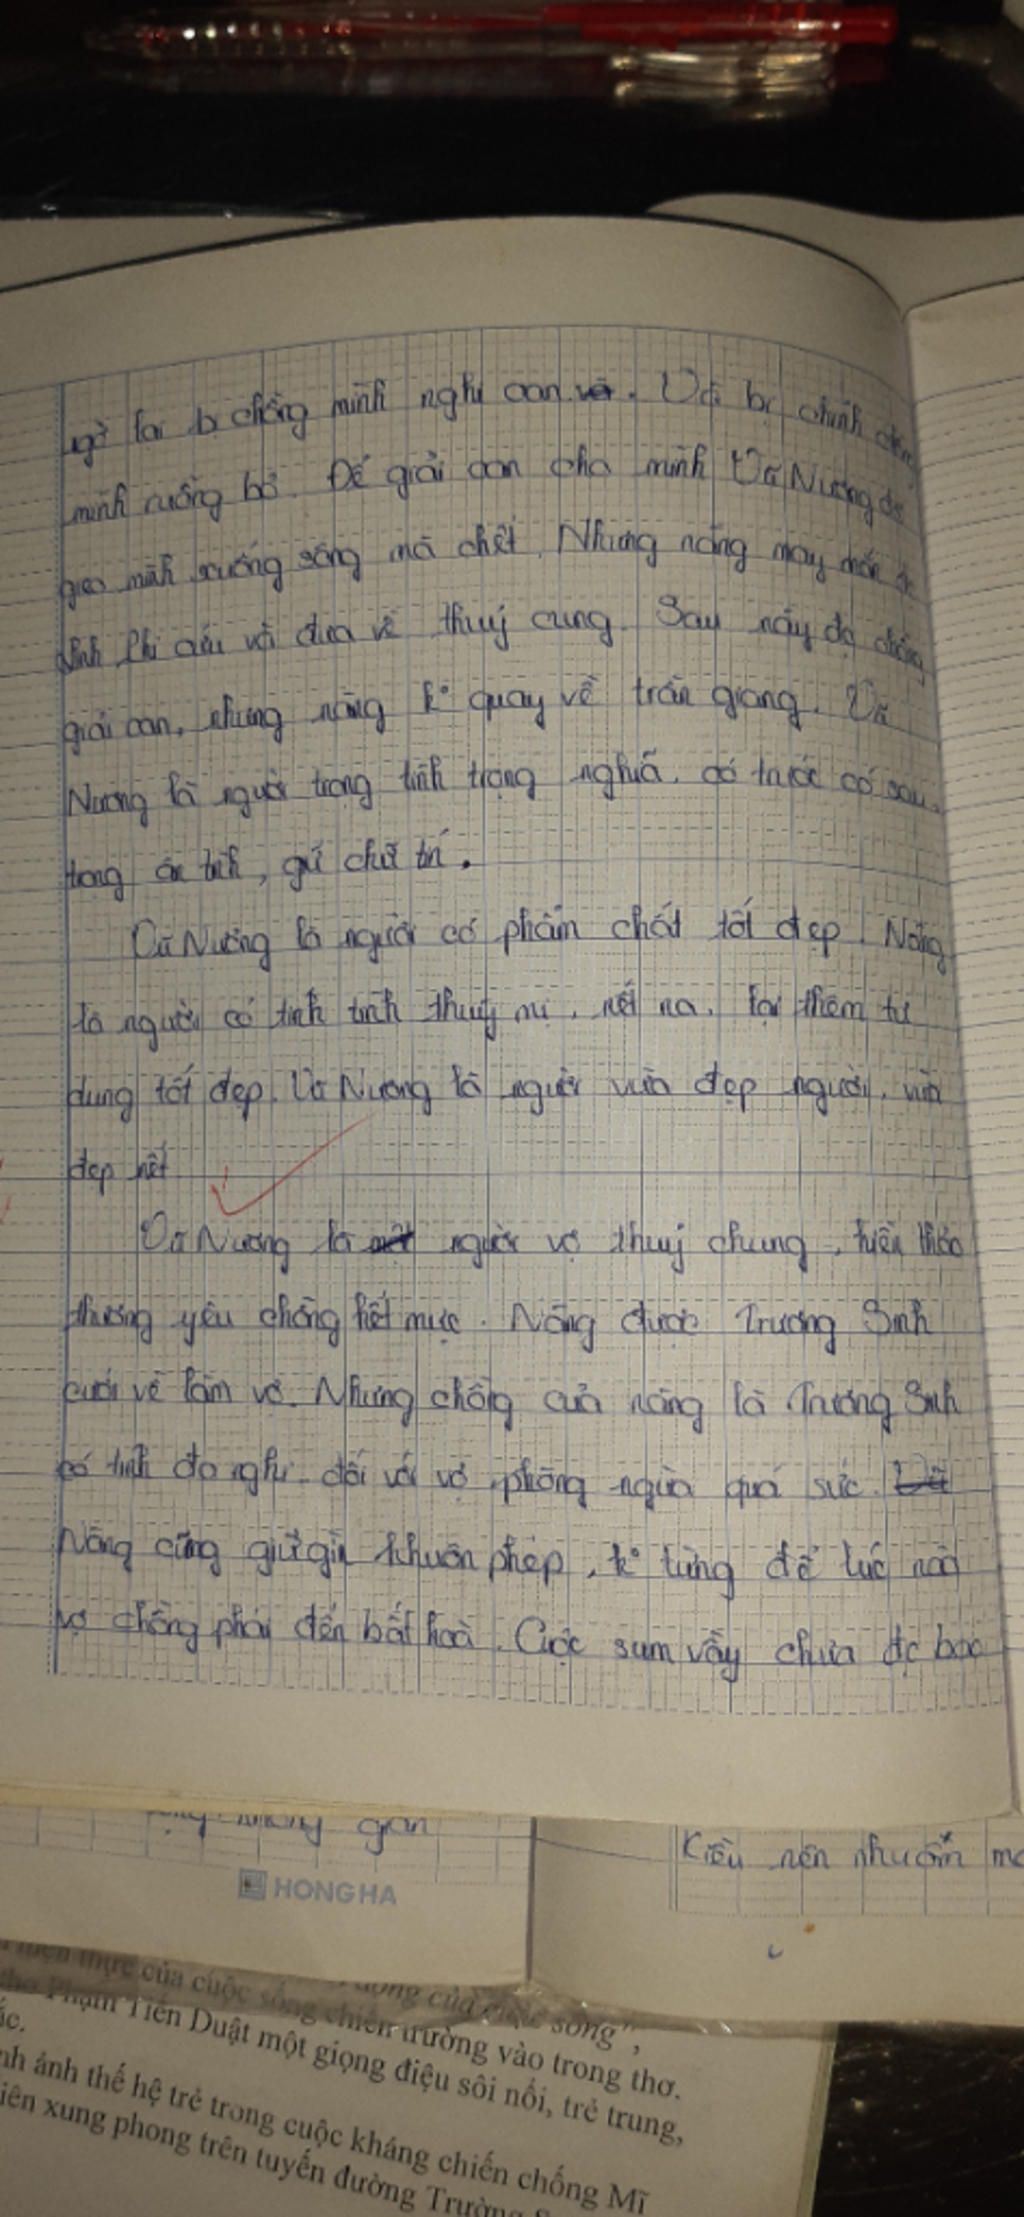 lại bị chồng mình nghi oan. Và bị chính
mình ruồng bỏ. Để giải oan cho mình Vũ Nương
gieo mình xuống sông mà chết. Nhưng nàng may mắn
Linh Phi cứu và đưa về thuỷ cung. Sau này đc chồng
giải oan, nhưng nàng k° quay về trần giang. Vũ
Nương là người trọng tình trọng nghĩa. có trước có sau.
trong ân tình, giữ chữ tín.
Vũ Nương là người có phẩm chất tốt đẹp. Nàng
là người có tính tình thuỳ mị, nết na. lại thêm tư
dung tốt đẹp. Vũ Nương là người vừa đẹp người, vừa
đẹp nết
Vũ Nương là một người vợ thuỷ chung, hiền thảo
thương yêu chồng hết mực. Nàng được Trương Sinh
cưới về làm vợ. Nhưng chồng của nàng là Trương Sinh
có tính đa nghi đối với vợ phòng ngừa quá sức.
Nàng cũng giữ gìn khuôn phép, k° từng để lúc nào
vợ chồng phải đến bất hoà. Cuộc sum vầy chưa đc bao
gan
HONG HA
Kiều nên nhuốm
thực của cuộc sống chiến trường vào trong thơ.
của cuộc sống",
Phạm Tiến Duật một giọng điệu sôi nổi, trẻ trung,
ảnh thế hệ trẻ trong cuộc kháng chiến chống Mĩ
xung phong trên tuyến đường